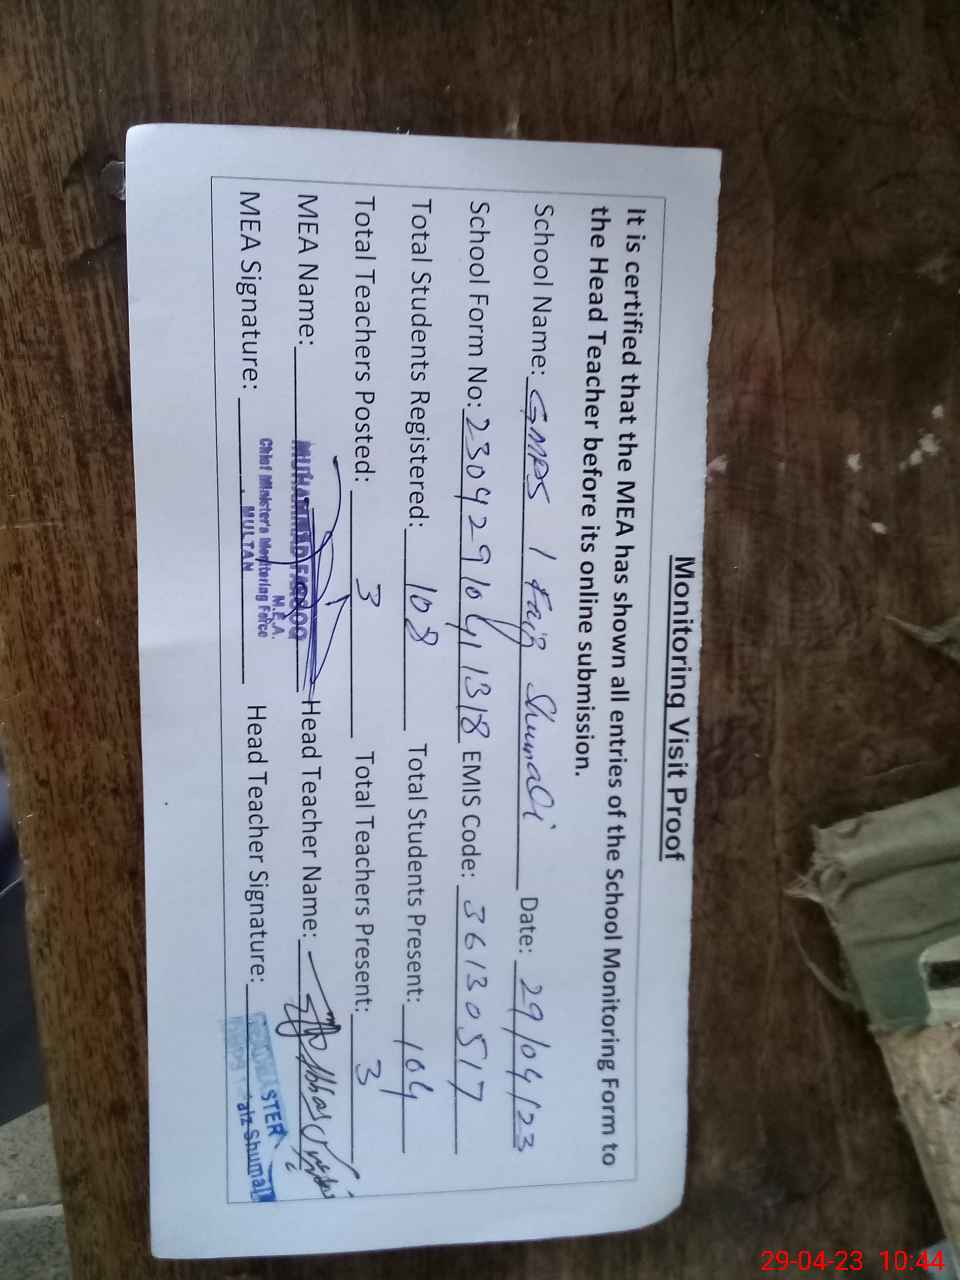 Monitoring Visit Proof
It is certified that the MEA has shown all entries of the School Monitoring Form to
the Head Teacher before its online submission.
School Name: GMPS 1 Faiz Shumali Date: 29/04/23
School Form No: 2304291041318 EMIS Code: 36130517
Total Students Registered: 108 Total Students Present: 104
Total Teachers Posted: 3 Total Teachers Present: 3
MEA Name: MUHAMMAD FAROOQ Head Teacher Name: Abbas
M.E.A.
Chief Minister's Monitoring Force
MULTAN
MEA Signature: Head Teacher Signature:
Faiz Shumali
29-04-23 10:44